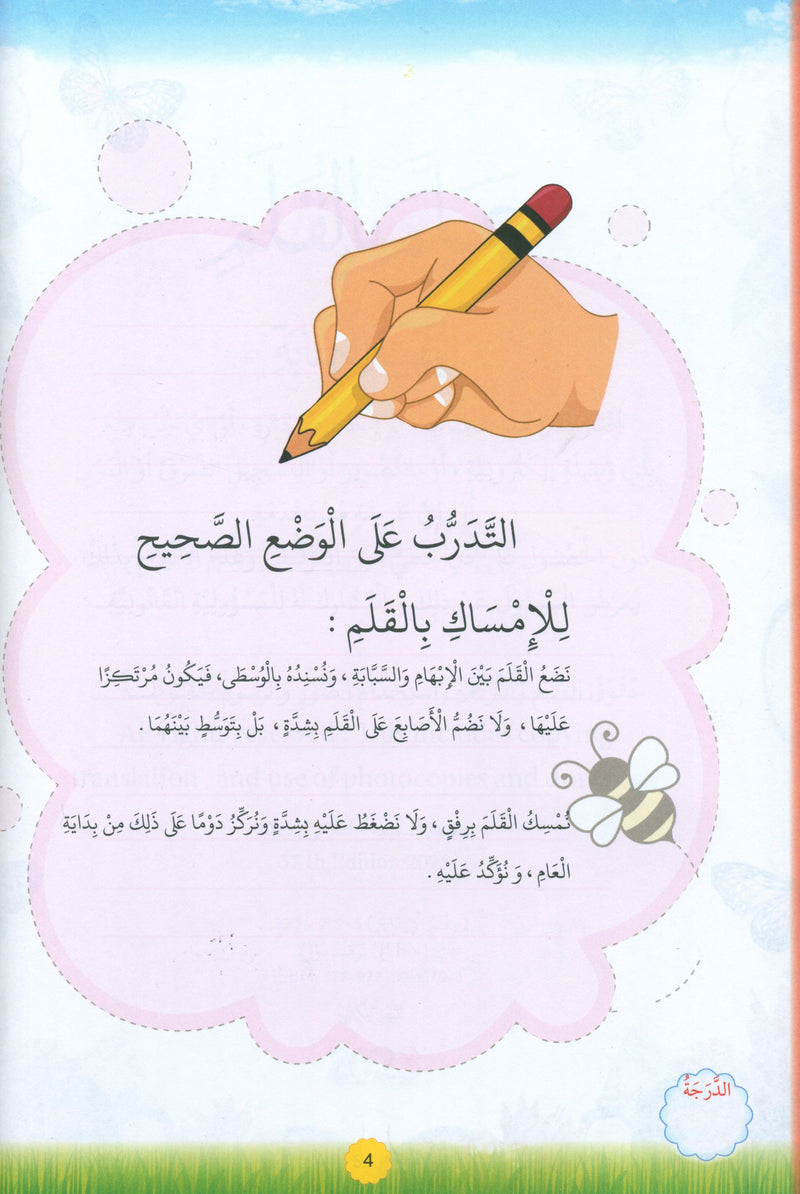 التَّدَرُّبُ عَلَى الْوَضْعِ الصَّحِيحِ
لِلْإِمْسَاكِ بِالْقَلَمِ :
نَضَعُ الْقَلَمَ بَيْنَ الْإِبْهَامِ وَالسَّبَّابَةِ ، وَنُسْنِدُهُ بِالْوُسْطَى، فَيَكُونُ مُرْتَكِزًا
عَلَيْهَا ، وَلَا نَضُمُّ الْأَصَابِعَ عَلَى الْقَلَمِ بِشِدَّةٍ ، بَلْ بِتَوَسُّطٍ بَيْنَهُمَا .
نُمْسِكُ الْقَلَمَ بِرِفْقٍ ، وَلَا نَضْغَطُ عَلَيْهِ بِشِدَّةٍ وَنُرَكِّزُ دَوْمًا عَلَى ذَلِكَ مِنْ بِدَايَةِ
الْعَامِ ، وَ نُؤَكِّدُ عَلَيْهِ .
الدَّرَجَةُ
4